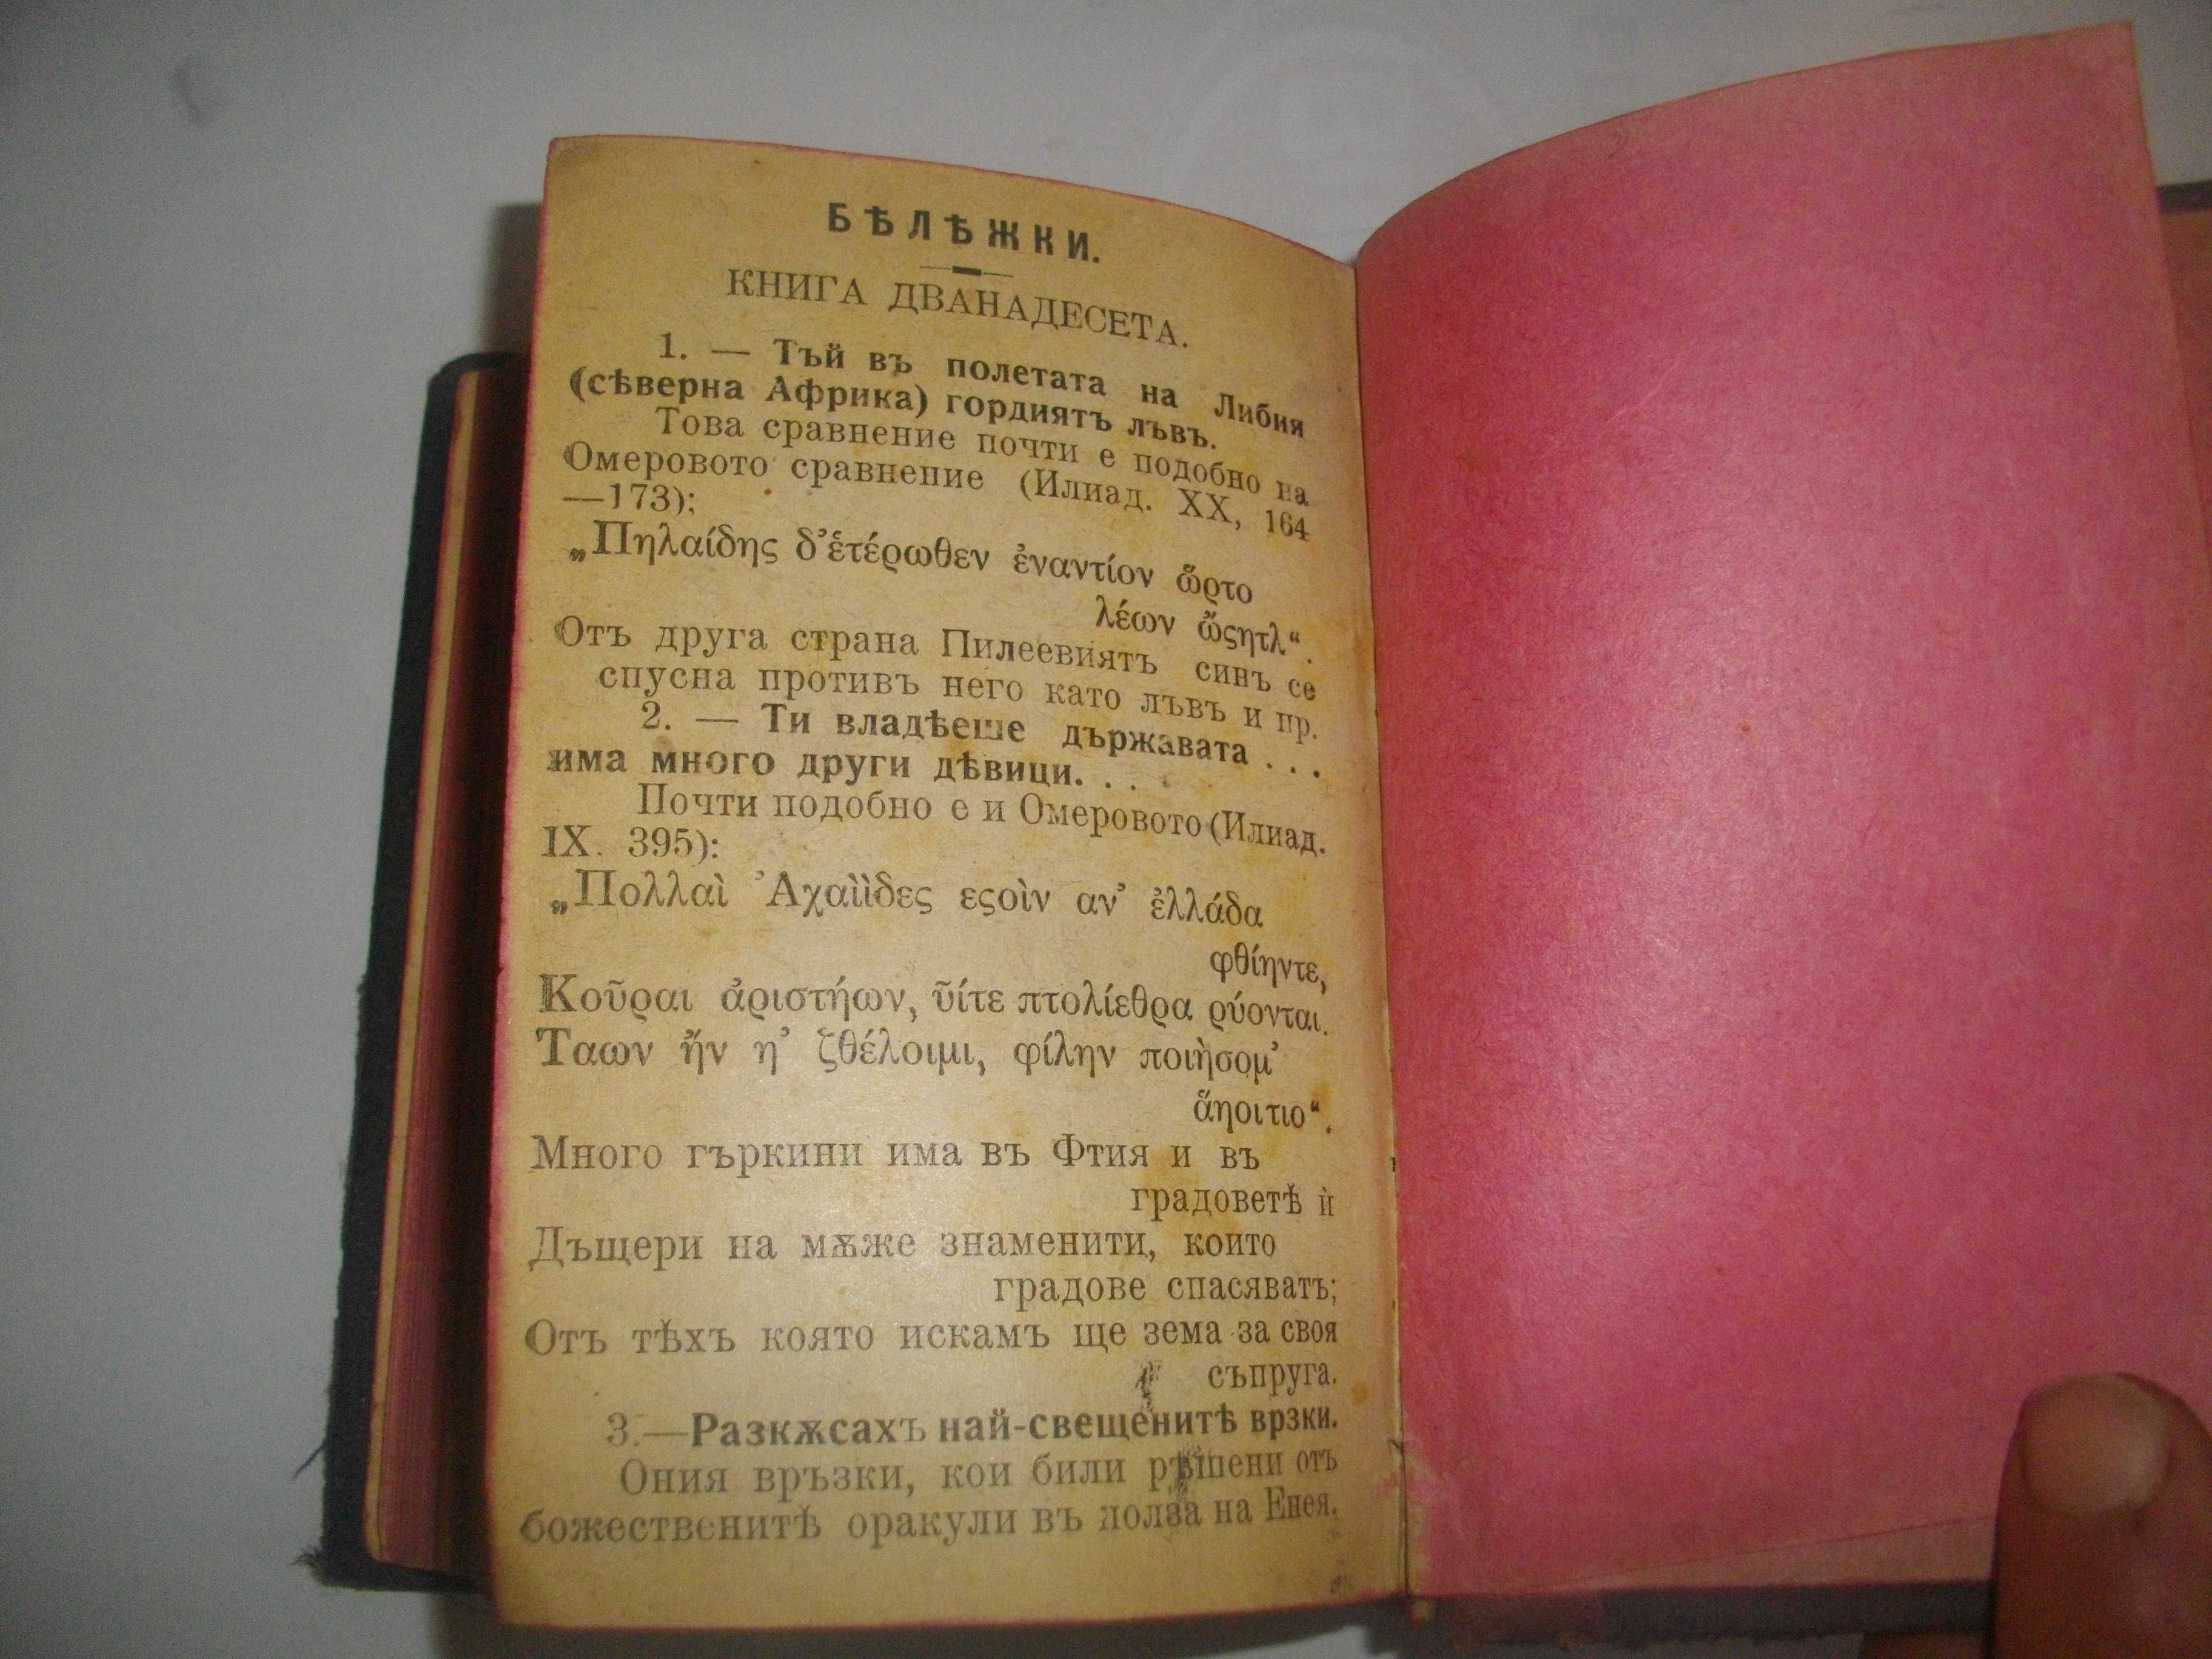 БѢЛѢЖКИ.
КНИГА ДВАНАДЕСЕТА.
1. — Тъй въ полетата на Либия
(сѣверна Африка) гордиятъ лъвъ.
Това сравнение почти е подобно на
Омеровото сравнение (Илиад. XX, 164
—173):
„Πηλαίδης δ’ἑτέρωθεν ἐναντίον ὦρτο
λέων ὤςητλ“.
Отъ друга страна Пилеевиятъ синъ се
спусна противъ него като лъвъ и пр.
2. — Ти владѣеше държавата . . .
има много други дѣвици. . .
Почти подобно е и Омеровото (Илиад.
IX. 395):
„Πολλαὶ ’Αχαιὶδες εςοὶν αν’ ἐλλάδα
φθίηντε,
Κοῦραι ἀριστήων, ῦίτε πτολίεθρα ρύονται.
Ταων ἤν η’ ζθέλοιμι, φίλην ποιὴσομ’
ἄηοιτιο“.
Много гъркини има въ Фтия и въ
градоветѣ ѝ
Дъщери на мѫже знаменити, които
градове спасяватъ;
Отъ тѣхъ която искамъ ще зема за своя
съпруга.
3.—Разкѫсахъ най-свещенитѣ врзки.
Ония връзки, кои били рѣшени отъ
божественитѣ оракули въ полза на Енея.